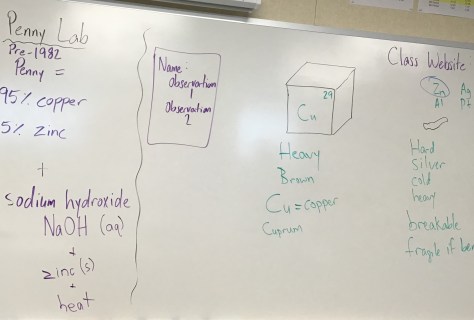 Penny Lab
Pre-1982
Penny =
95% copper
5% zinc
+
sodium hydroxide
NaOH (aq)
+
zinc (s)
+
heat
Name:
Observation
1
Observation
2
29
Cu
Heavy
Brown
Cu = copper
Cuprum
Class Website
Zn Ag
Al Pt
Hard
Silver
cold
heavy
breakable
fragile if